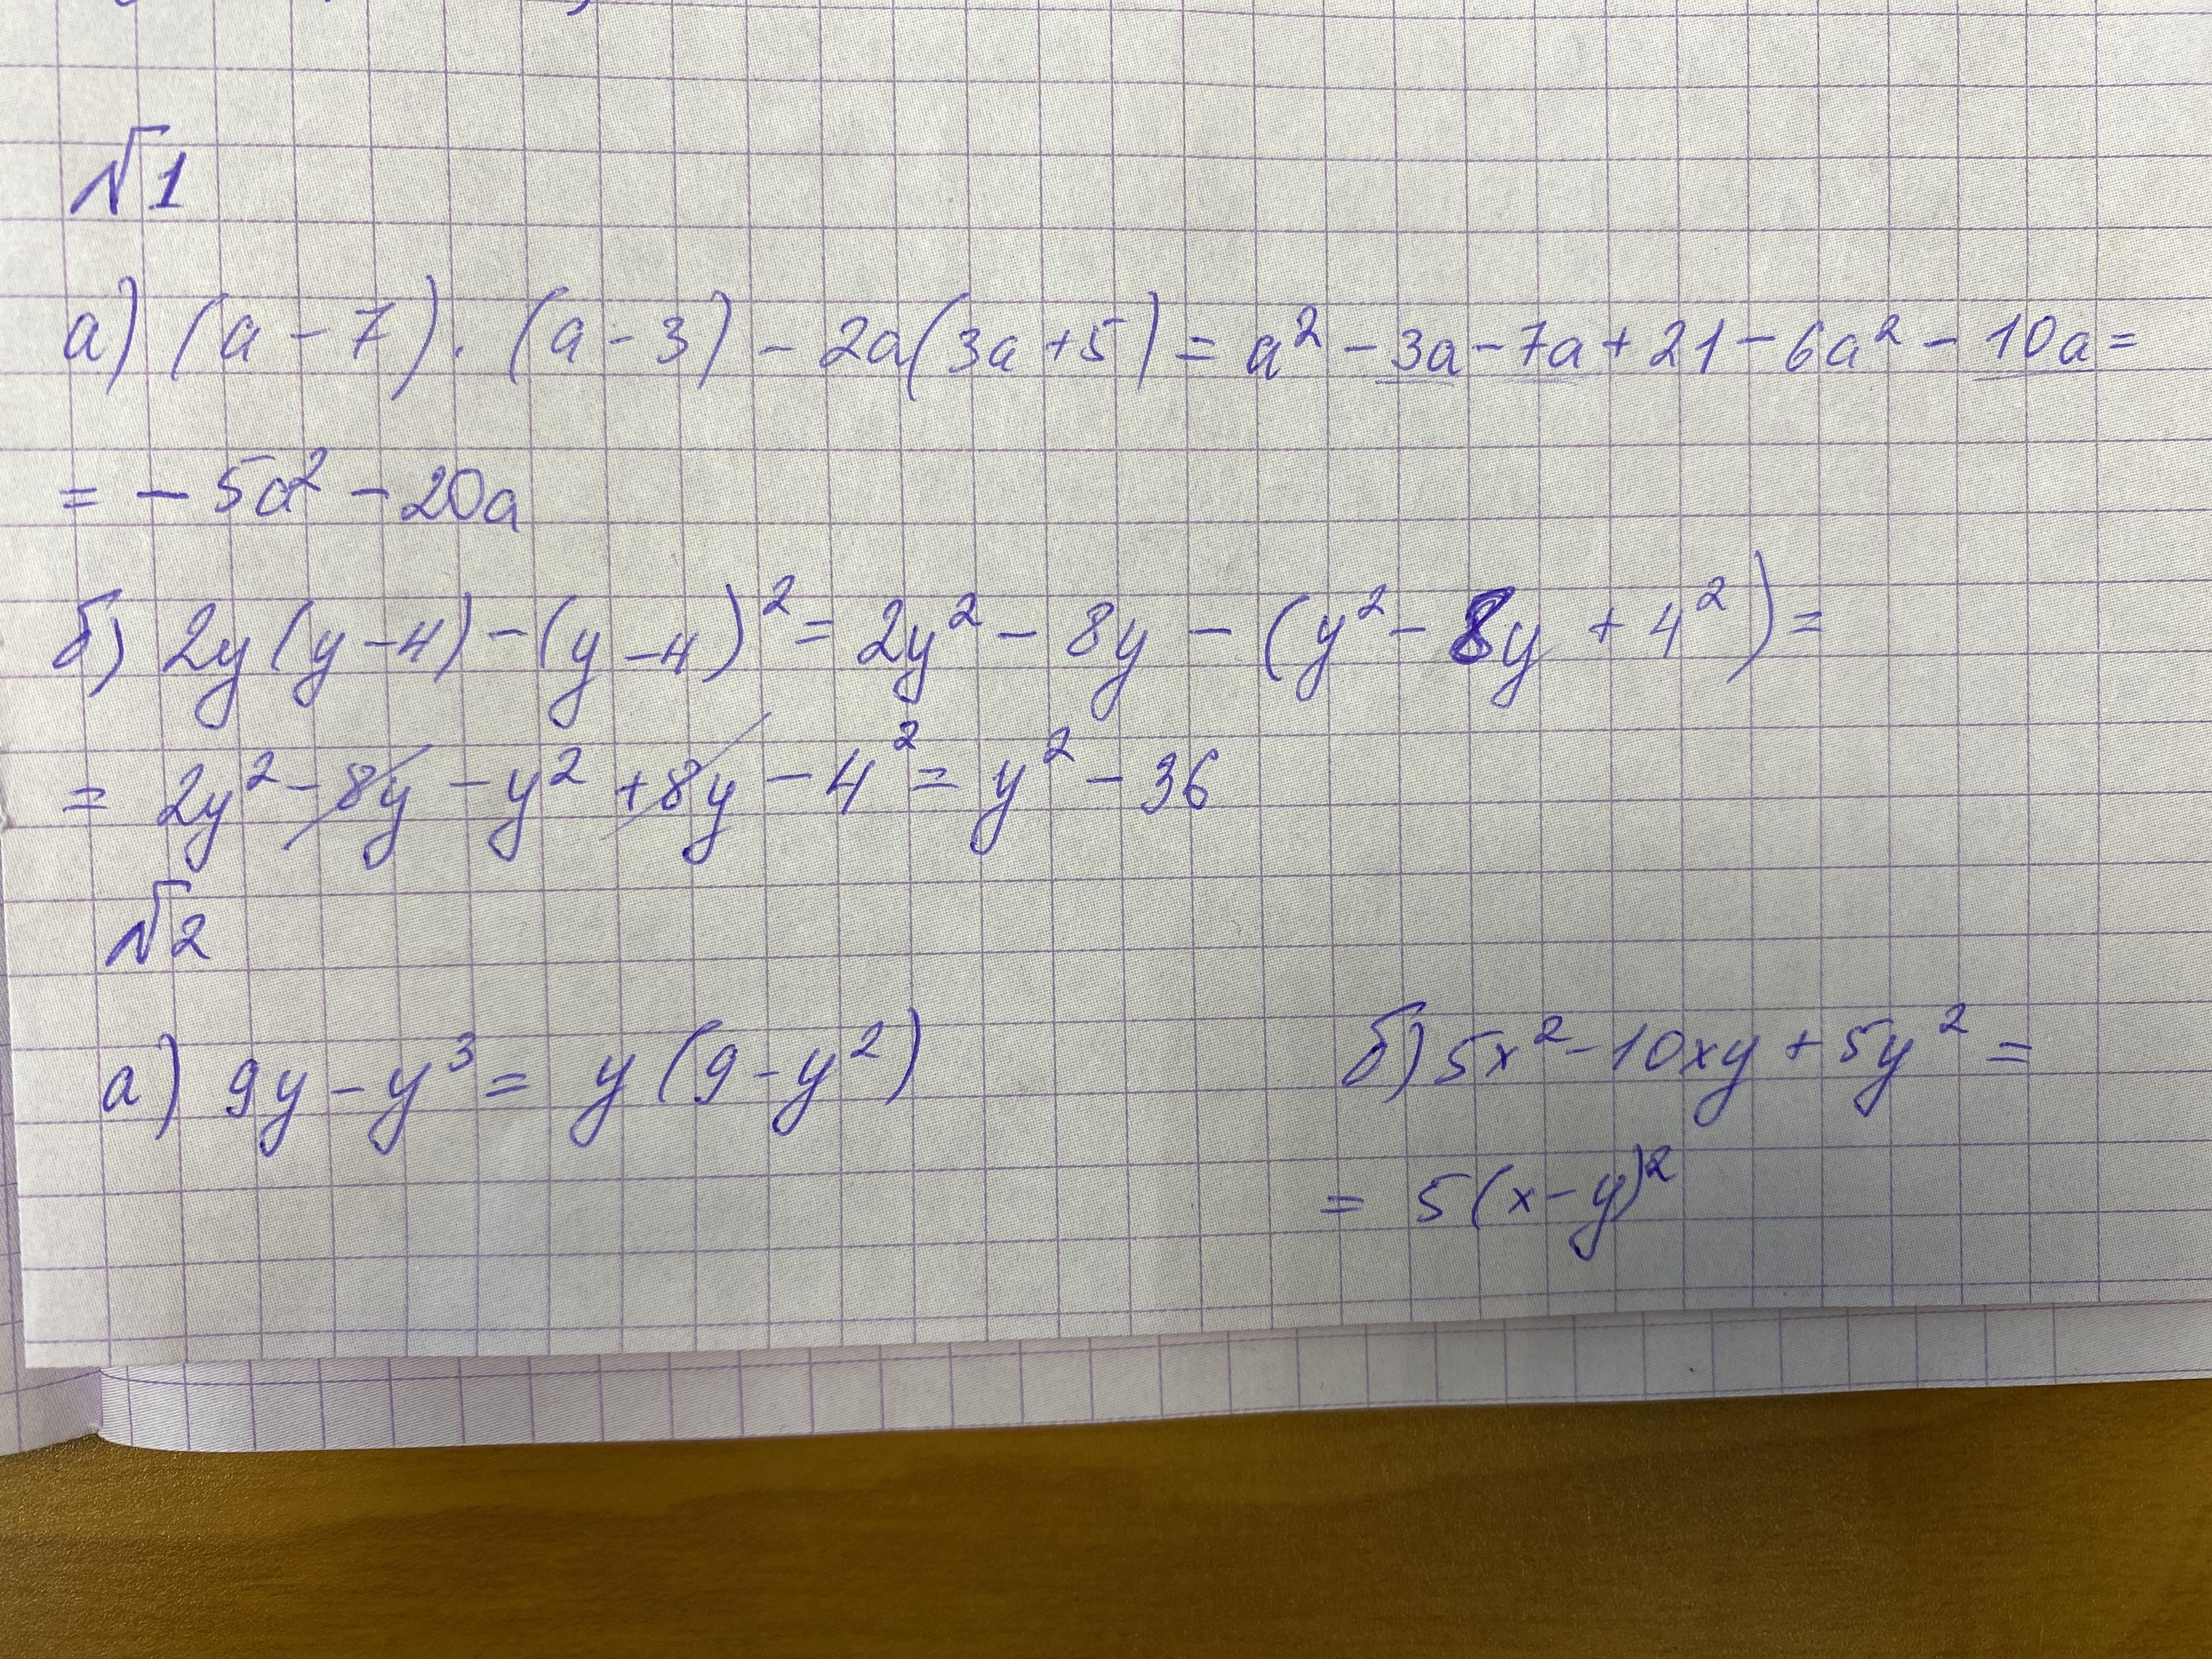 №1
а) (a - 7) · (a - 3) - 2a(3a + 5) = a² - 3a - 7a + 21 - 6a² - 10a =
= - 5a² - 20a
б) 2y(y - 4) - (y - 4)² = 2y² - 8y - (y² - 8y + 4²) =
= 2y² - 8y - y² + 8y - 4² = y² - 36
№2
а) 9y - y³ = y(9 - y²)
б) 5x² - 10xy + 5y² =
= 5(x - y)²